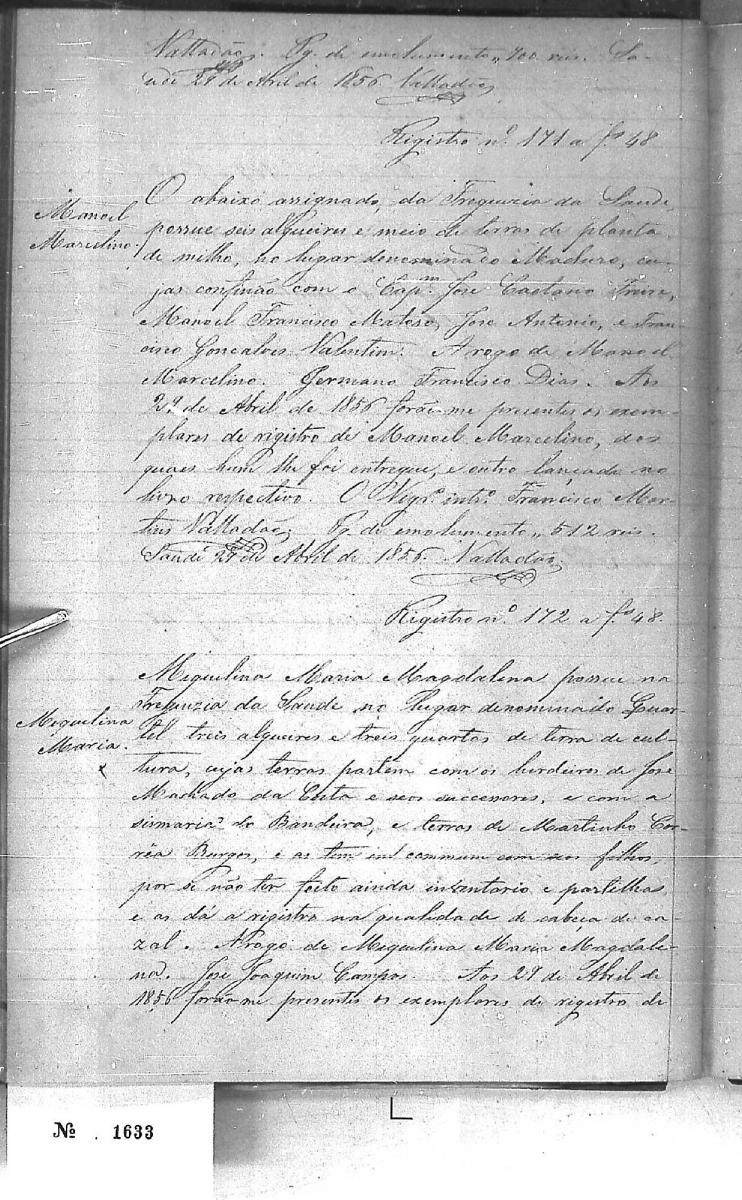 Valladão. Pg. de emolumento " 700 reis. Sa-
ude 29 de Abril de 1856 Valladão
Registro nº 171 a fs 48
Manoel
Marcelino.
O abaixo assignado, da Freguezia da Saude,
possue seis alqueires e meio de terras de planta
de milho, no lugar denominado Maduro, cu-
jas confinão com o Capm. José Caetano Freire,
Manoel Francisco Matoso, José Antonio, e Fran-
cisco Goncalvis Valentim. A rogo de Manoel
Marcelino. Germano Francisco Dias. Aos
29 de Abril de 1856 forão-me presentes os exem-
plares de rigistro de Manoel Marcelino, dos
quaes hum lhe foi entregue, e outro lançado no
livro respectivo. O Vigrº. intrº. Francisco Mar-
tins Valladão. Pg. de emolumento " 512 reis.
Saude 29 de Abril de 1856. Valladão
Registro nº 172 a fs 48.
Miquilina
Maria.
Miquilina Maria Magdalena possue na
Freguzia da Saude no lugar denominado Quar-
tel treis alqueires e treis quartos de terra de cul-
tura, cujas terras partem com os herdeiros de José
Machado da Costa e seos successores, e com a
sismaria do Bandeira, e terras de Martinho Cor-
rêa Burgos, e as tem em commum com seos filhos,
por se não ter feito ainda inventario e partilhas
e as dá a registro na qualidade de cabeça de ca-
zal. A rogo de Miquilina Maria Magdale-
na. José Joaquim Campos. Aos 29 de Abril de
1856 forão-me presentes os exemplares de registro de
Nº 1633